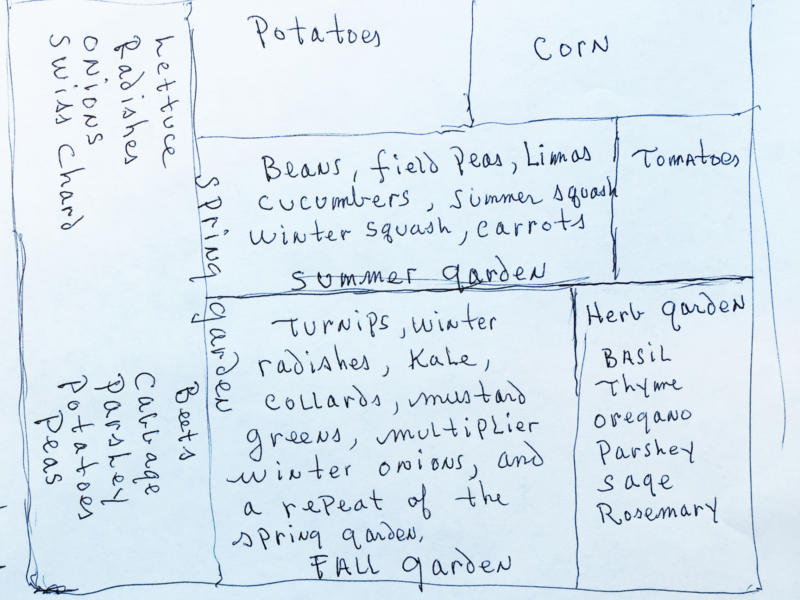 Lettuce
Radishes
Onions
Swiss Chard
Beets
Cabbage
Parsley
Potatoes
Peas
Spring garden
Potatoes
Corn
Beans, field peas, Limas
cucumbers, summer squash
winter squash, carrots
summer garden
Tomatoes
Turnips, winter
radishes, Kale,
collards, mustard
greens, multiplier
winter onions, and
a repeat of the
spring garden.
FALL garden
Herb garden
BASIL
Thyme
oregano
Parsley
sage
Rosemary